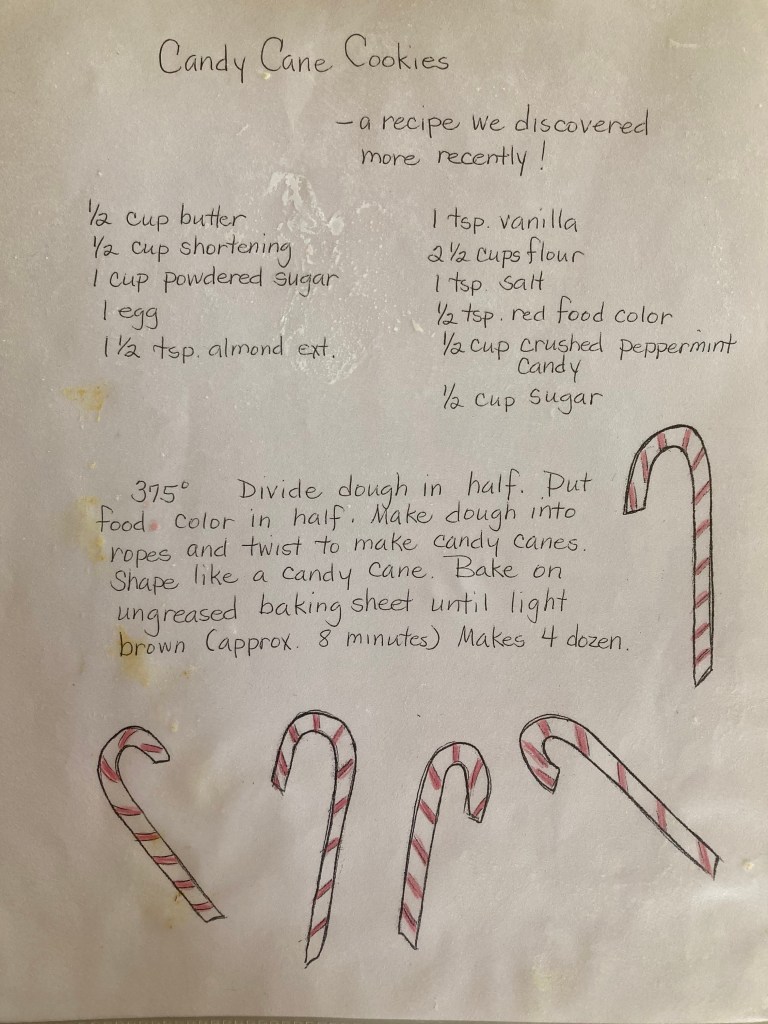 Candy Cane Cookies
– a recipe we discovered
more recently!
½ cup butter
½ cup shortening
1 cup powdered sugar
1 egg
1 ½ tsp. almond ext.
1 tsp. vanilla
2 ½ cups flour
1 tsp. salt
½ tsp. red food color
½ cup crushed peppermint
candy
½ cup sugar
375° Divide dough in half. Put
food color in half. Make dough into
ropes and twist to make candy canes.
Shape like a candy cane. Bake on
ungreased baking sheet until light
brown (approx. 8 minutes) Makes 4 dozen.